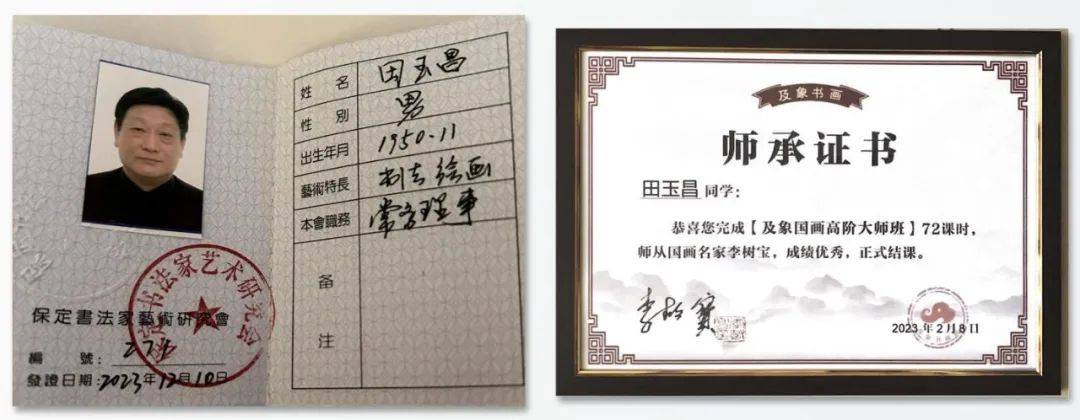 姓名 田玉昌
性別 男
出生年月 1950-11
藝術特長 书法绘画
本會職務 常务理事
备注
保定書法家藝術研究會
編號:
發證日期:2023年12月10日
及象书画
师承证书
田玉昌同学:
恭喜您完成【及象国画高阶大师班】72课时,
师从国画名家李树宝,成绩优秀,正式结课。
李树宝
2023年2月8日